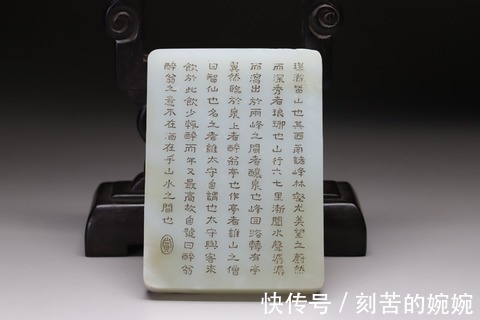 環滁皆山也其西南諸峰林壑尤美望之蔚然
而深秀者瑯琊也山行六七里漸聞水聲潺潺
而瀉出於兩峰之間者釀泉也峰回路轉有亭
翼然臨於泉上者醉翁亭也作亭者誰山之僧
曰智仙也名之者誰太守自謂也太守與客來
飲於此飲少輒醉而年又最高故自號曰醉翁
醉翁之意不在酒在乎山水之間也
快传号 / 刻苦的婉婉